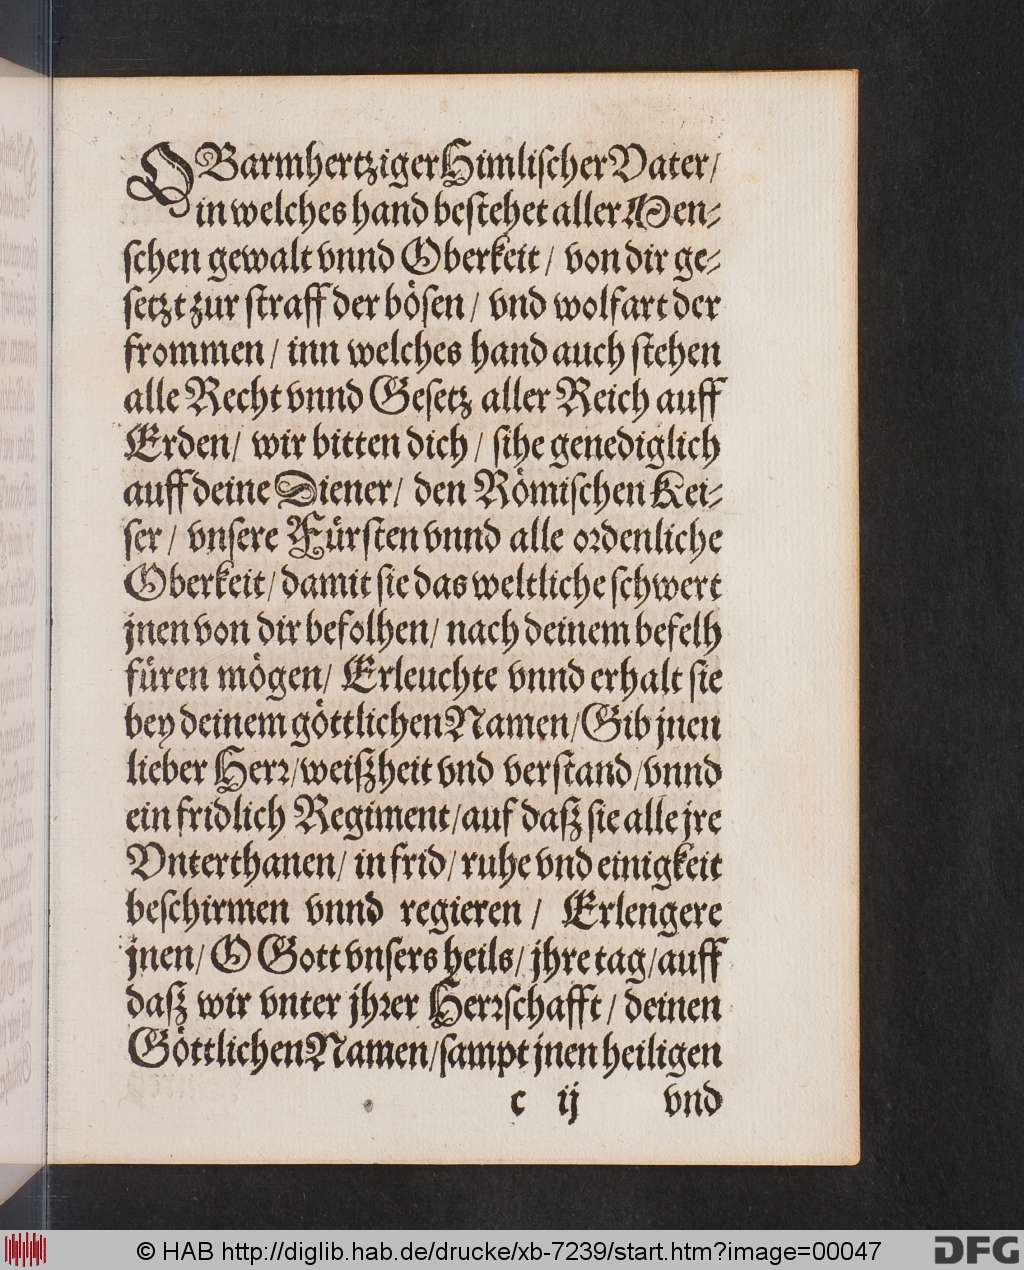 O Barmhertziger Himlischer Vater/
in welches hand bestehet aller Men-
schen gewalt vnnd Oberkeit/ von dir ge-
setzt zur straff der bösen/ vnd wolfart der
frommen/ inn welches hand auch stehen
alle Recht vnnd Gesetz aller Reich auff
Erden/ wir bitten dich/ sihe genediglich
auff deine Diener/ den Römischen Kei-
ser/ vnsere Fürsten vnnd alle ordenliche
Oberkeit/ damit sie das weltliche schwert
jnen von dir befolhen/ nach deinem befelh
füren mögen/ Erleuchte vnnd erhalt sie
bey deinem göttlichen Namen/ Gib jnen
lieber Herr/ weißheit vnd verstand/ vnnd
ein fridlich Regiment/ auf daß sie alle jre
Vnterthanen/ in frid/ ruhe vnd einigkeit
beschirmen vnnd regieren/ Erlengere
jnen/ O Gott vnsers heils/ jhre tag/ auff
daß wir vnter jhrer Herrschafft/ deinen
Göttlichen Namen/ sampt jnen heiligen
c ij vnd
© HAB http://diglib.hab.de/drucke/xb-7239/start.htm?image=00047
DFG